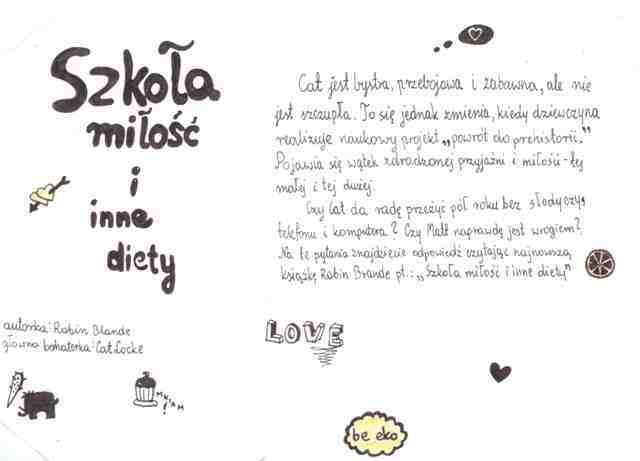 Szkoła
miłość
i
inne
diety
autorka: Robin Blande
główna bohaterka: Cat Locke
MNIAM!
Cat jest bystra, przebojowa i zabawna, ale nie
jest szczupła. To się jednak zmienia, kiedy dziewczyna
realizuje naukowy projekt „powrót do prehistorii."
Pojawia się wątek zdradzonej przyjaźni i miłości - tej
małej i tej dużej.
Czy Cat da radę przeżyć pół roku bez słodyczy,
telefonu i komputera? Czy Matt naprawdę jest wrogiem?
Na te pytania znajdziecie odpowiedź czytając najnowszą
książkę Robin Brande pt.: „Szkoła miłość i inne diety"
LOVE
be eko